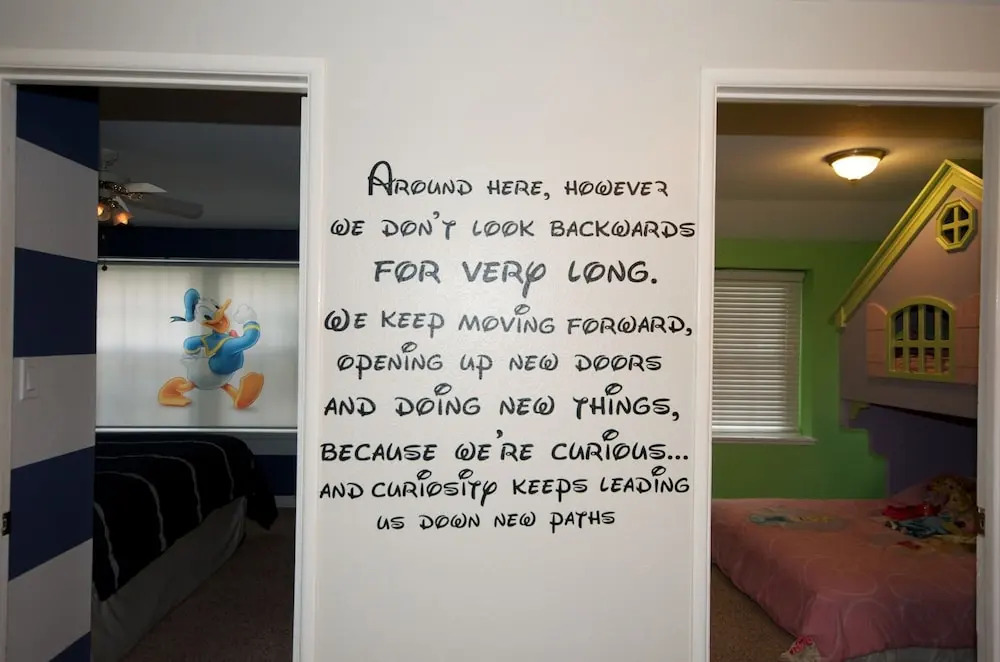 Around here, however
we don't look backwards
for very long.
We keep moving forward,
opening up new doors
and doing new things,
because we're curious...
and curiosity keeps leading
us down new paths